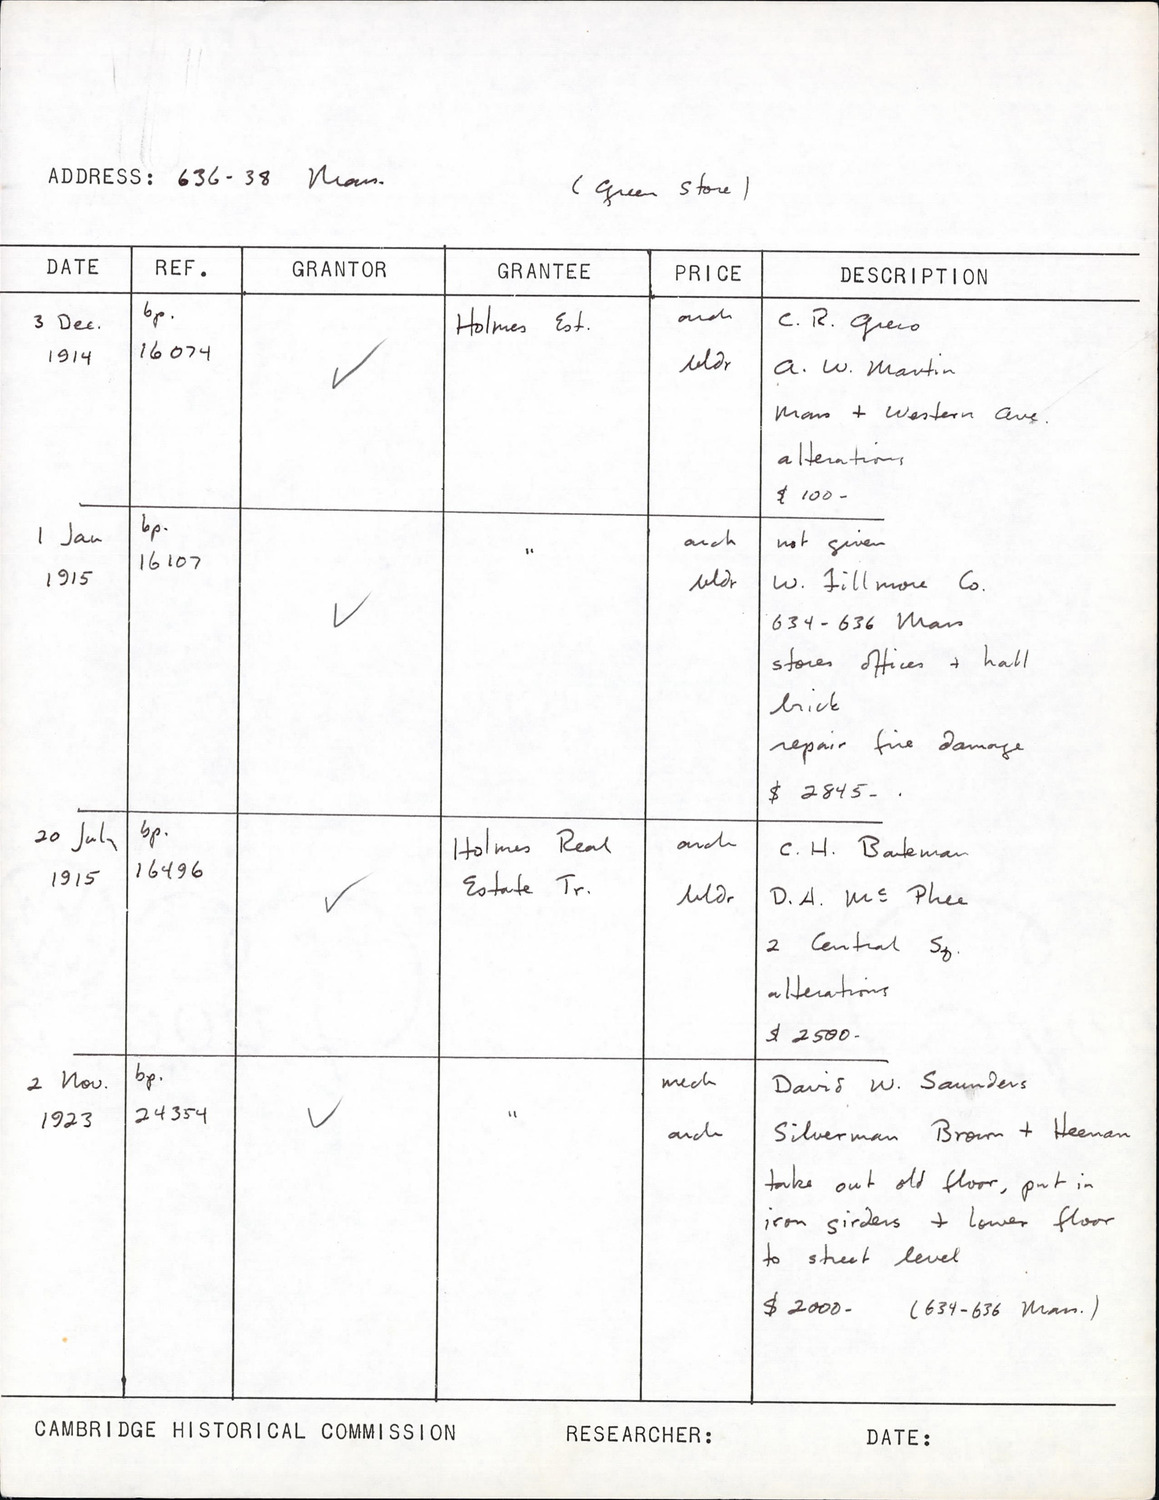 ADDRESS: 636-38 Mass. (Green Store)
DATE REF. GRANTOR GRANTEE PRICE DESCRIPTION
3 Dec. bp. Holmes Est. arch C. R. Greco
1914 16074 ✓ bldr A. W. Martin
Mass + Western Ave.
alterations
$ 100-
1 Jan bp. " arch not given
1915 16107 ✓ bldr W. Fillmore Co.
634-636 Mass
stores offices + hall
brick
repair fire damage
$ 2845-
20 July bp. Holmes Real arch C. H. Bateman
1915 16496 ✓ Estate Tr. bldr D. A. McPhee
2 Central Sq.
alterations
$ 2500-
2 Nov. bp. mech David W. Saunders
1923 24354 ✓ " arch Silverman Brown + Heenan
take out old floor, put in
iron girders + lower floor
to street level
$ 2000- (634-636 Mass.)
CAMBRIDGE HISTORICAL COMMISSION RESEARCHER: DATE: